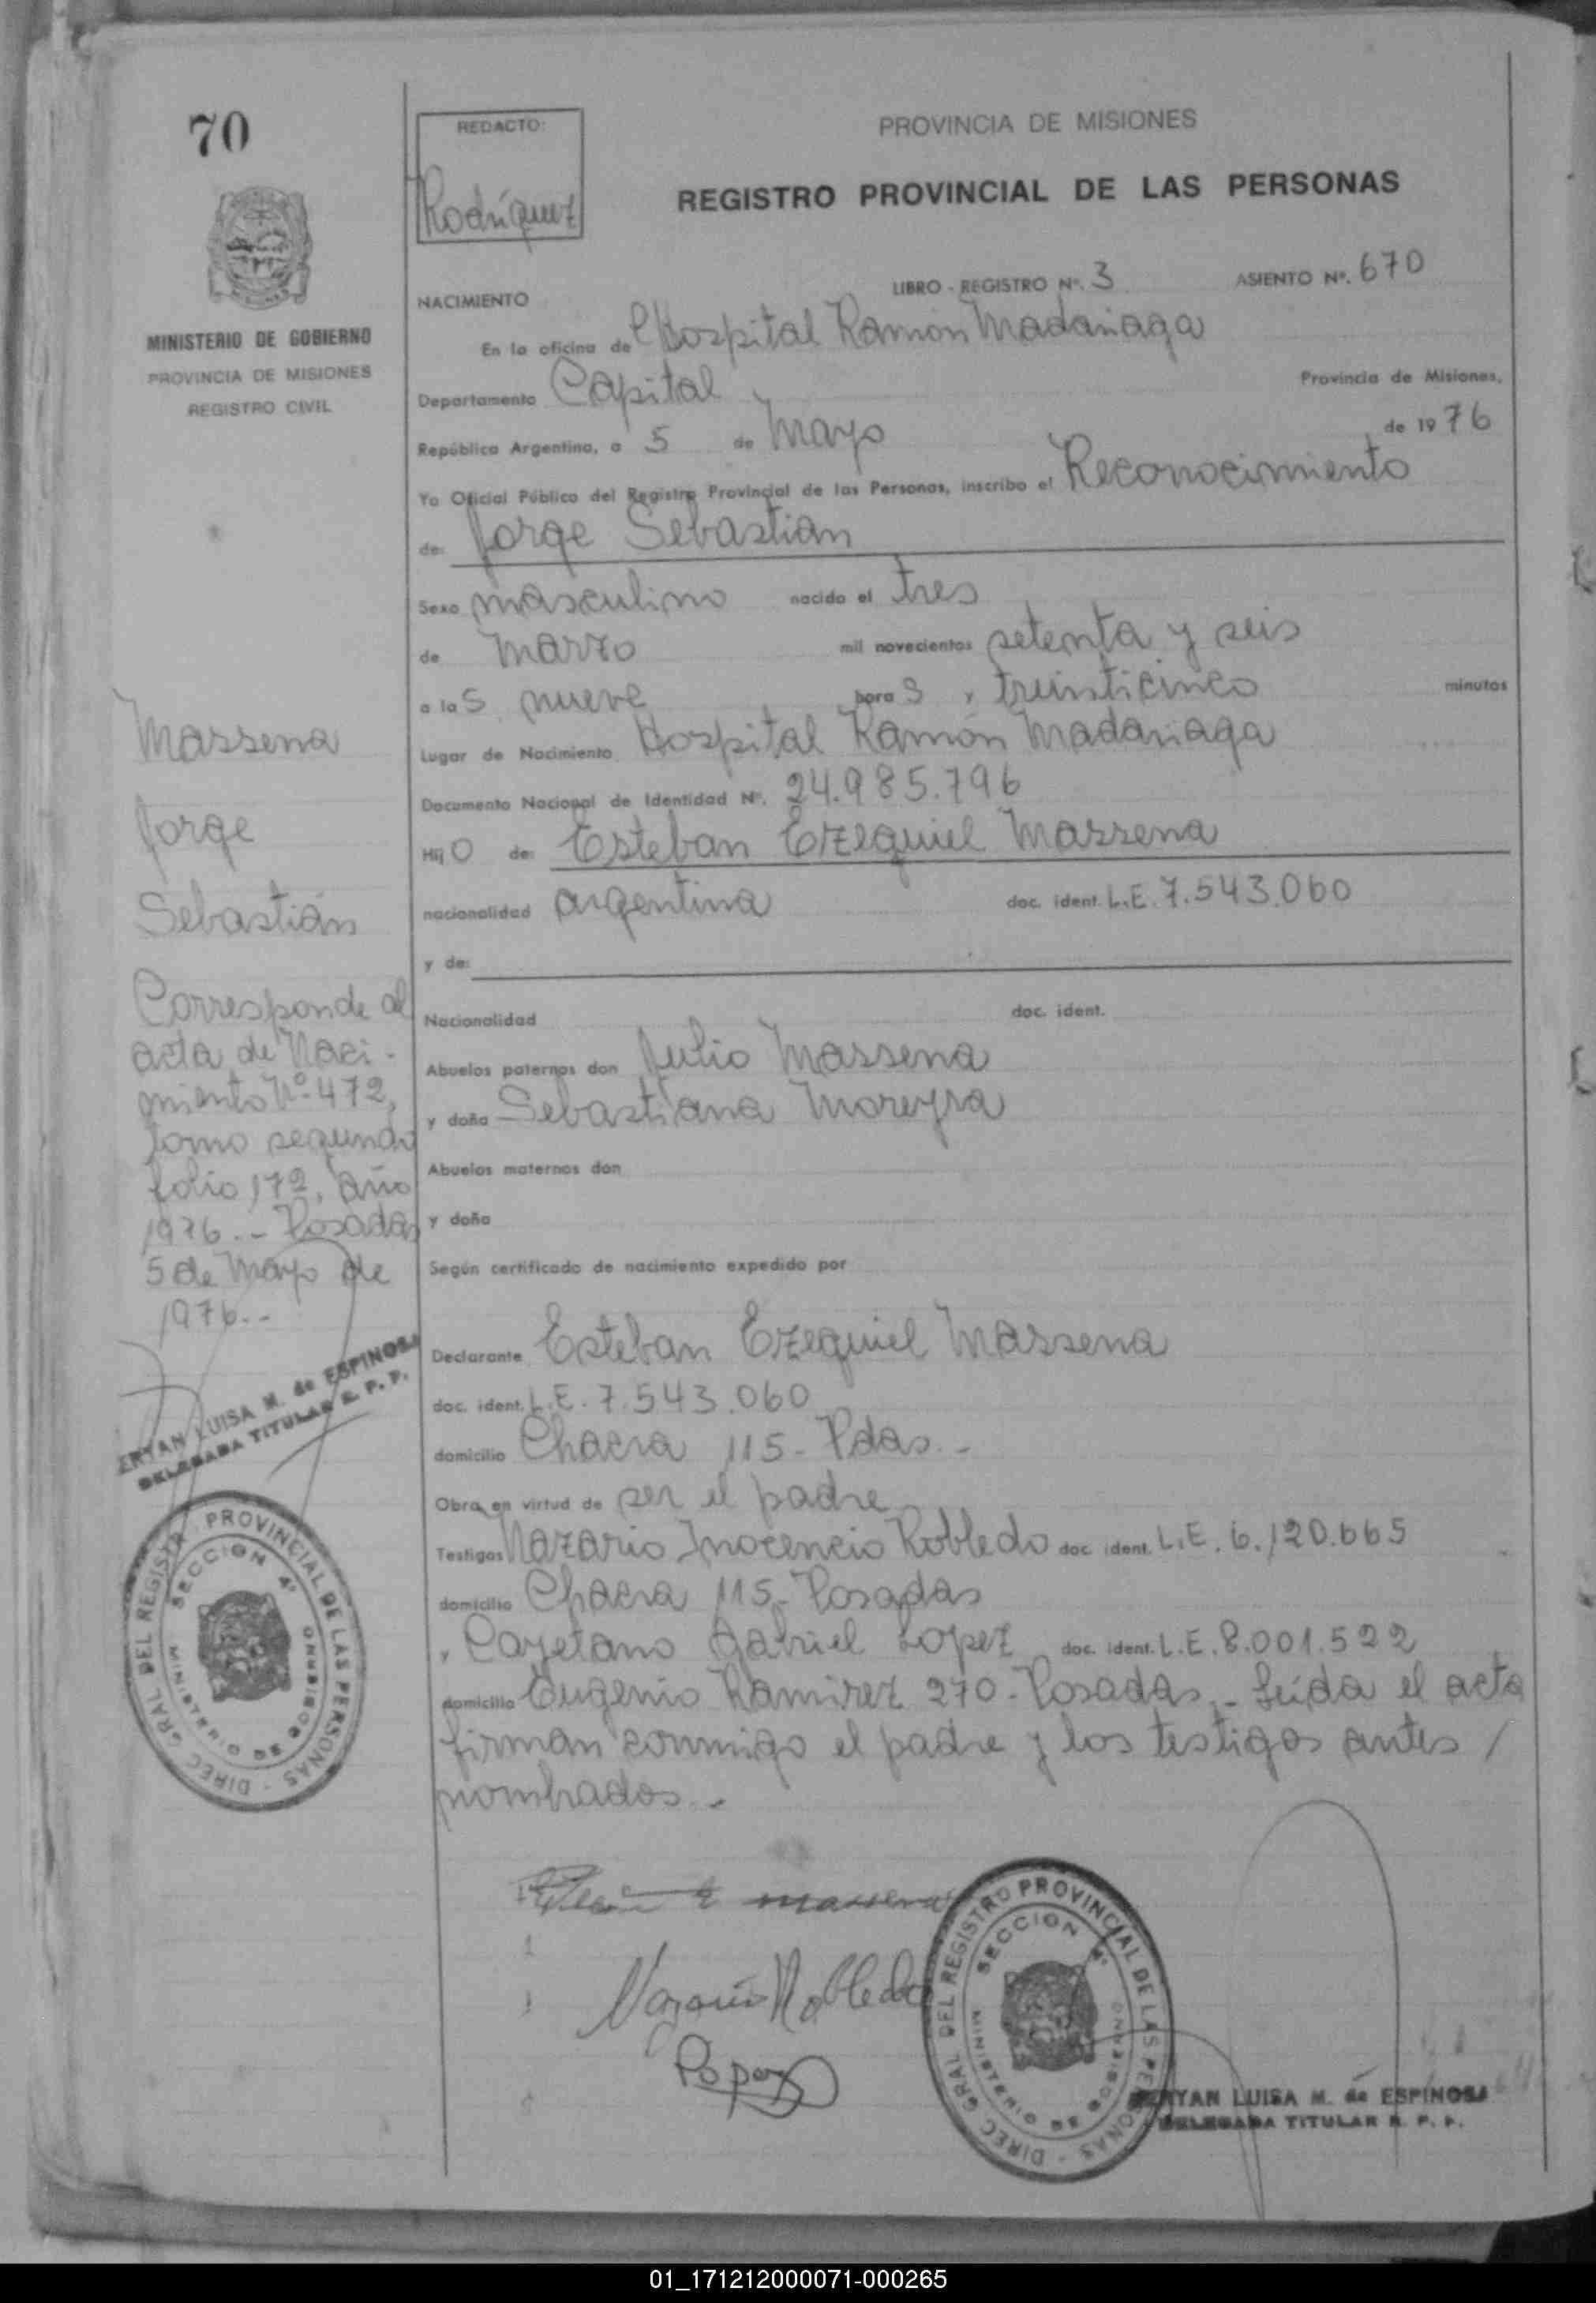 70
MINISTERIO DE GOBIERNO
PROVINCIA DE MISIONES
REGISTRO CIVIL
REDACTO:
Rodríguez
PROVINCIA DE MISIONES
REGISTRO PROVINCIAL DE LAS PERSONAS
NACIMIENTO LIBRO - REGISTRO Nº. 3 ASIENTO Nº. 670
En la oficina de Hospital Ramón Madariaga
Departamento Capital Provincia de Misiones,
República Argentina, a 5 de Mayo de 1976
Yo Oficial Público del Registro Provincial de las Personas, inscribo el Reconocimiento
de: Jorge Sebastián
Sexo masculino nacido el tres
de Marzo mil novecientos setenta y seis
a las nueve horas y treinticinco minutos
Lugar de Nacimiento Hospital Ramón Madariaga
Documento Nacional de Identidad Nº. 24.985.796
Hijo de: Esteban Ezequiel Massena
nacionalidad argentina doc. ident. L.E. 7.543.060
y de:
Nacionalidad doc. ident.
Abuelos paternos don Julio Massena
y doña Sebastiana Moreyra
Abuelos maternos don
y doña
Según certificado de nacimiento expedido por
Declarante Esteban Ezequiel Massena
doc. ident. L.E. 7.543.060
domicilio Chacra 115 - Pdas. -
Obra en virtud de ser el padre
Testigos Nazario Inocencio Robledo doc. ident. L.E. 6.120.665
domicilio Chacra 115 - Posadas
y Cayetano Gabriel Lopez doc. ident. L.E. 8.001.522
domicilio Eugenio Ramirez 270 - Posadas. - Leída el acta
firman conmigo el padre y los testigos antes /
nombrados. -
Massena
Jorge
Sebastián
Corresponde al
acta de Naci-
miento Nº 472,
tomo segundo
folio 172, año
1976. - Posadas
5 de Mayo de
1976. -
ERYAN LUISA M. de ESPINOSA
DELEGADA TITULAR R. P. P.
DIREC. GRAL. DEL REGISTRO PROVINCIAL DE LAS PERSONAS
SECCION 4ª
MINISTERIO DE GOBIERNO
E massena
Nazario Robledo
Lopez
DIREC. GRAL. DEL REGISTRO PROVINCIAL DE LAS PERSONAS
SECCION 4ª
MINISTERIO DE GOBIERNO
ERYAN LUISA M. de ESPINOSA
DELEGADA TITULAR R. P. P.
01_171212000071-000265